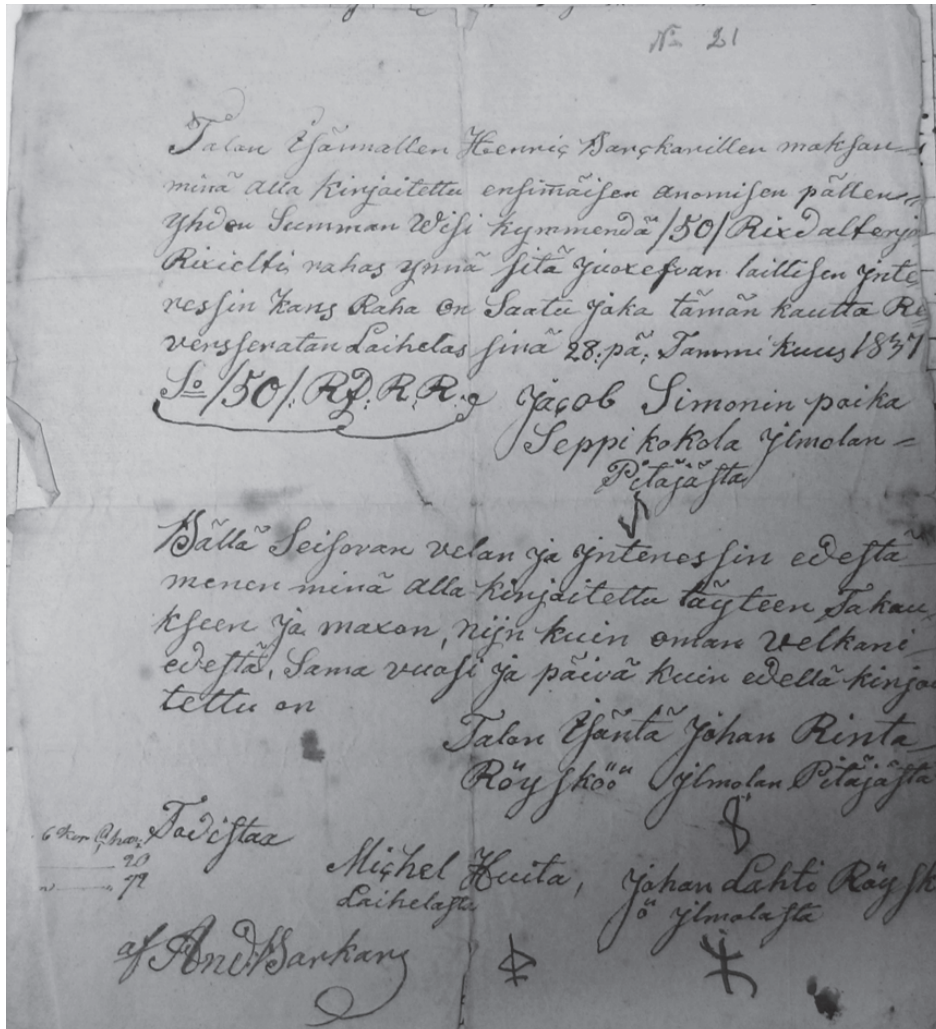 No 21
Talon Isännällen Henric Barckarillen maksan
minä alla kirjaitettu ensimäisen anomisen pällen
yhden Summan Wisi kymmendä /50/ Rixdalterja
Rixielti rahas ynnä sitä juoxefvan laillisen jnte
ressin kans Raha on Saatu joka tämän kautta Re
versseratan Laihelas sinä 28: pä: Tammi kuus 1837
So /50/: RD: R: R:
Jacob Simonin poika
Seppi kokola jlmolan
Pitäjästä
Bällä Seisovan velan ja jnteressin edestä
menen minä alla kirjaitettu täyteen Takau
kseen ja maxon, nijn kuin oman velkani
edestä, Sama vuosi ja päivä kuin edellä kirjoi
tettu on
Talon Isäntä Johan Rinta
Röysköö jlmolan Pitäjästä
Todistaa
6 kor
20
Michel Huita, Johan Lahti Röysk
Laihelasta ö jlmolasta
af And: Barkar